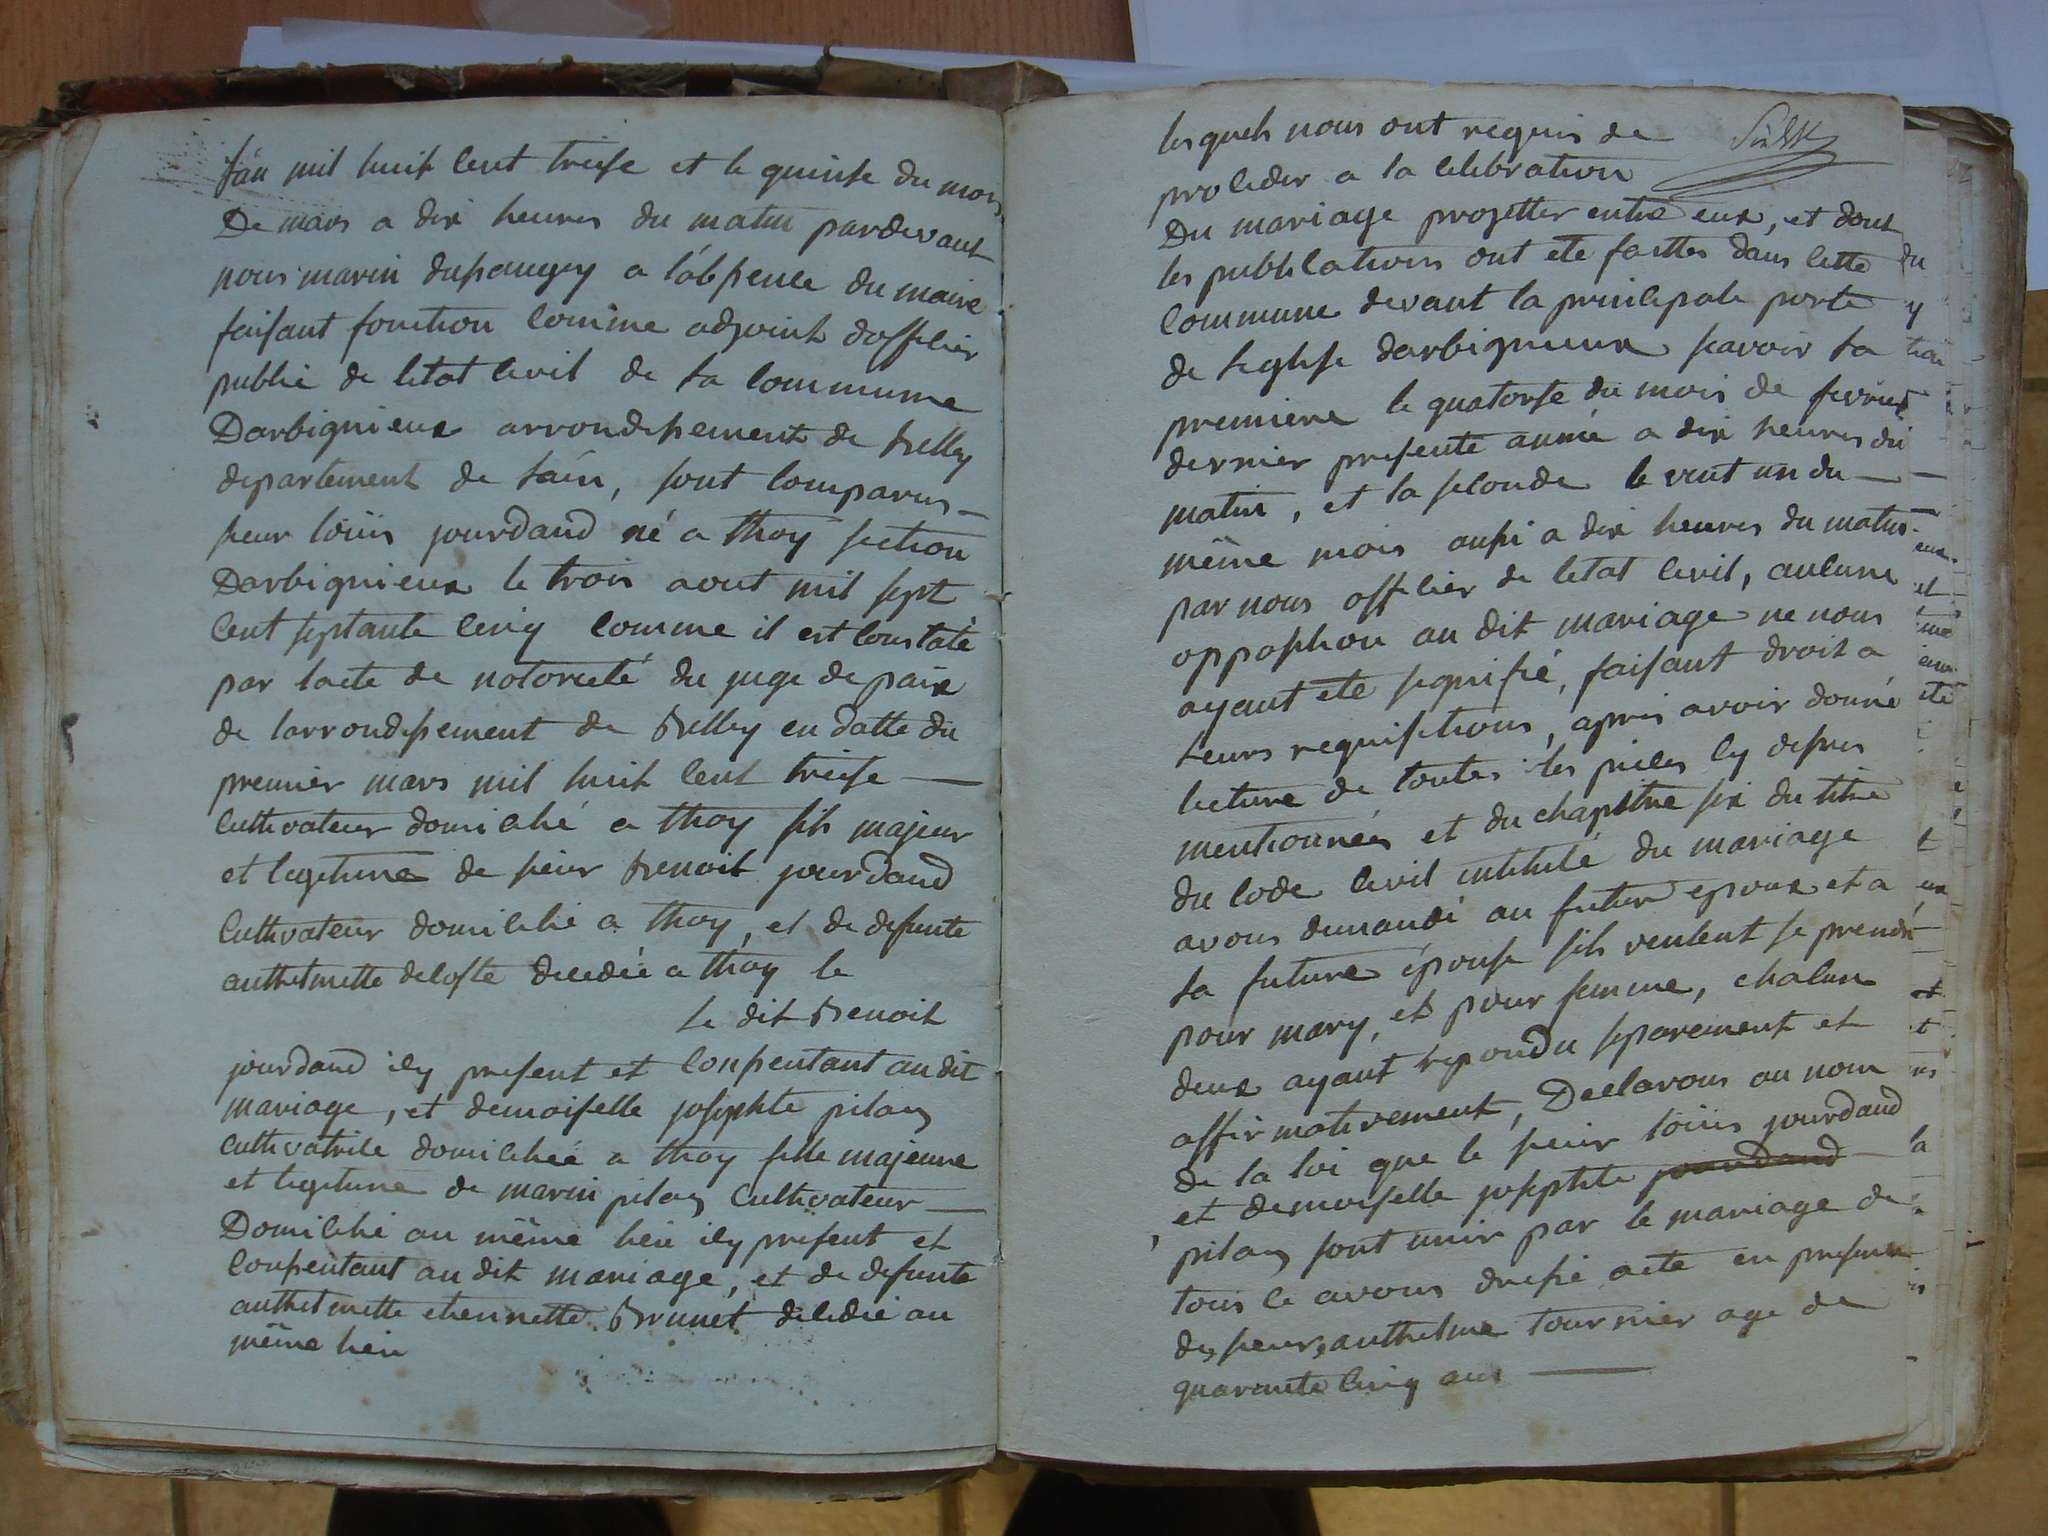 Lan mil huit cent treise et le quinse du mois
De mars a dix heures du matin pardevant
nous marin dupaugey a l'absence du maire
faisant fonction comme adjoint d'officier
public de letat civil de la commune
Darbignieux arrondissement de Belley
departement de Lain, sont comparus
sieur loüis jourdand né a thoy section
Darbignieux le trois aout mil sept
cent septante cinq comme il est constaté
par lacte de notorieté du juge de paix
de larrondissement de Belley en datte du
premier mars mil huit cent treise
cultivateur domicilié a thoy fils majeur
et legitime de sieur Benoit jourdand
cultivateur domicilié a thoy, et de defunte
anthelmette deloste decedée a thoy le
le dit Benoit
jourdand icy present et consentant au dit
mariage, et demoiselle josephte pilaz
cultivatrice domiciliée a thoy fille majeure
et legitime de marin pilaz cultivateur
Domicilié au même lieu icy present et
consentant au dit mariage, et de defunte
anthelmette etiennette Brunet decedée au
même lieu
lesquels nous ont requis de
proceder a la celebration
Du mariage projetter entre eux, et dont
les publications ont ete faittes dans cette
commune devant la principale porte
de leglise darbignieux scavoir la
premiere le quatorse du mois de fevrier
dernier presente année a dix heures du
matin, et la seconde le vent un du
même mois aussi a dix heures du matin
par nous officier de letat civil, aucune
opposition au dit mariage ne nous
ayant ete signifié, faisant droit a
leurs requisitions, apres avoir donné
lecture de toutes les pieces cy dessus
mentionnées et du chapitre six du titre
du code civil intitulé du mariage
avons demandé au futur epoux et a
la future épouse sils veulent se prendre
pour mary, et pour femme, chacun
deux ayant repondu separement et
affirmativement, Declarons au nom
de la loi que le sieur loüis jourdand
et demoiselle josephte jourdand
pilaz sont unir par le mariage de
tous ce avons dressé acte en presence
des sieurs anthelme tournier age de
quarante cinq ans